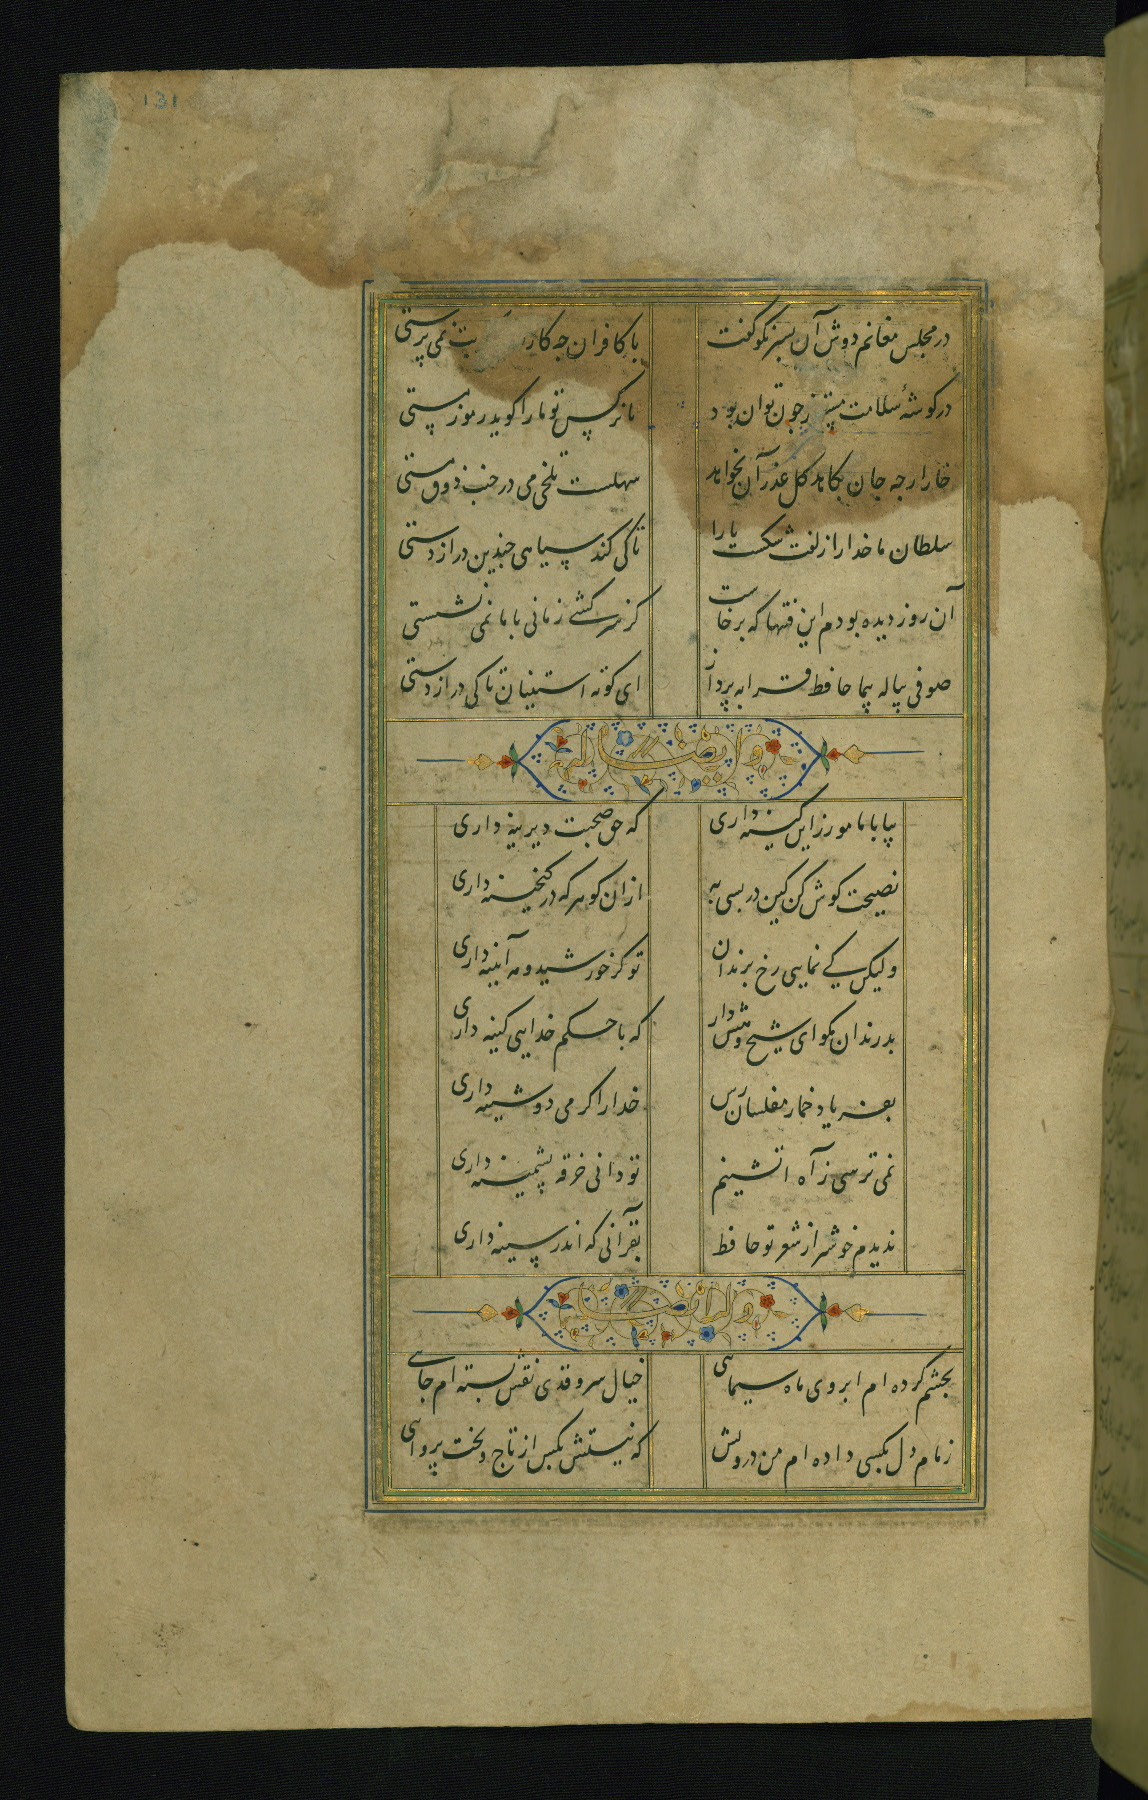 131
در مجلس مغانم دوش آن بسر نکو گفت با کافران جه کار بت نمی پرستی
در کوشهٔ سلامت جون توان بود تا نرکس تو ما را کوید رموز مستی
خار ارجه جان بکاهد کل عذر آن بخواهد سهلست تلخی می در جنب ذوق مستی
سلطان ما خدا را زلفت شکست ما را تا کی کند سیاهی جندین دراز دستی
آن روز دیده بودم این فتنها که برخاست کز سرکشی زمانی با ما نمی نشستی
صوفی پیاله پیما حافظ قرابه پرداز ای کوته استینیان تا کی دراز دستی
وله ایضا
بیا با ما مورز این کینه داری که حق صحبت دیرینه داری
نصیحت کوش کن کین در بسی به ازان کوهر که در کنجینه داری
ولیکن کی نمایی رخ برندان تو کز خورشید و مه آیینه داری
بد رندان مکو ای شیخ و هش دار که با حکم خدایی کینه داری
بفریاد خمار مفلسان رس خدا را کر می دوشینه داری
نمی ترسی ز آه اتشینم تو دانی خرقه پشمینه داری
ندیدم خوشتر از شعر تو حافظ بقرآنی که اندر سینه داری
وله ایضا
بجشم کرده ام ابروی ماه سیمایی خیال سرو قدی نقش بسته ام جایی
زمام دل بکسی داده ام من درویش که نیستش بکس از تاج و تخت پروایی